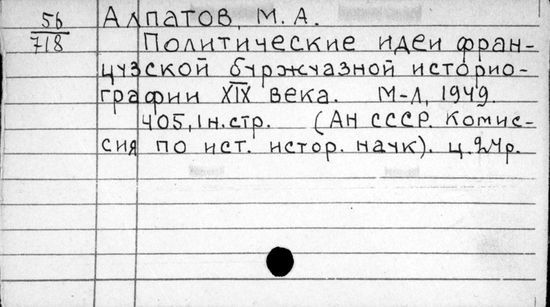 56 Алпатов, М. А.
718 Политические идеи фран-
цузской буржуазной историо-
графии XIX века. М-Л, 1949.
405, 1н. стр. (АН СССР. Комис-
сия по ист. истор. наук). ц. 24р.